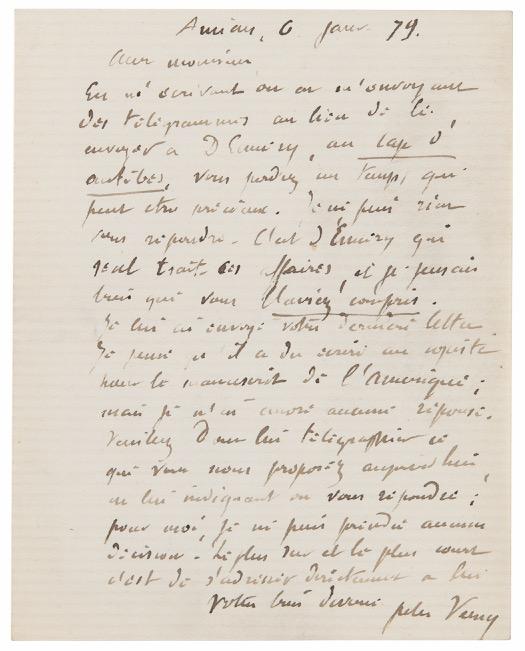 Amiens, 6 janv. 79.
Cher monsieur
En m'écrivant ou en m'envoyant
des télégrammes au lieu de les
envoyer a D'Ennery, au cap d'
antibes, vous perdez un temps qui
peut etre précieux. Je ne puis rien
vous répondre. C'est D'Ennery qui
seul traite ces affaires, et je pensais
bien que vous l'aviez compris.
Je lui ai envoyé votre derniere lettre
Je pense qu'il a du écrire au
pour le manuscrit de l'Amerique ;
mais je n'ai encore aucune réponse.
Veuillez donc lui télégraphier ce
que vous nous proposez aujourd'hui,
en lui indiquant ou vous répondre ;
pour moi, je ne puis prendre aucune
décision. Le plus sur et le plus court
c'est de s'adresser directement a lui
Votre bien devoué Jules Verne